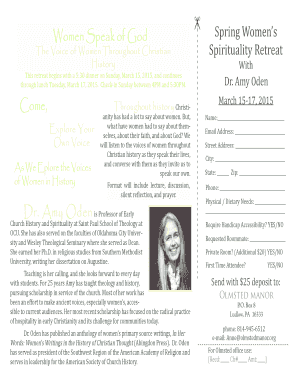 Women Speak of God:
The Voice of Women Throughout Christian
History
Come,
Explore Your
Own Voice
As We Explore the Voices
of Women in History
Throughout history Christi-
anity has had a lot to say about women. But,
what have women had to say about them-
selves, about their faith, and about God? We
will listen to the voices of women throughout
Christian history as they speak their lives,
and converse with them as they invite us to
speak our own.
Format will include lecture, discussion,
silent reflection, and prayer.
Dr. Amy Oden is Professor of Early
Church History and Spirituality at Saint Paul School of Theology at
OCU. She has also served on the faculties of Oklahoma City Univer-
sity and Wesley Theological Seminary where she served as Dean.
She earned her Ph.D. in religious studies from Southern Methodist
University, writing her dissertation on Augustine.
Teaching is her calling, and she looks forward to every day
with students. For 25 years Amy has taught theology and history,
pursuing scholarship in service of the church. Most of her work has
been an effort to make ancient voices, especially women's, acces-
sible to current audiences. Her most recent scholarship has focused on the radical practice
of hospitality in early Christianity and its challenge for communities today.
Dr. Oden has published an anthology of women's primary source writings, In Her
Words: Women's Writings in the History of Christian Thought (Abingdon Press). Dr. Oden
has served as president of the Southwest Region of the American Academy of Religion and
serves in leadership for the American Society of Church History.
Spring Women's
Spirituality Retreat
With
Dr. Amy Oden
March 15-17, 2015
Name:
Email Address:
Street Address:
City:
State: Zip:
Phone:
Physical / Dietary Needs:
Require Handicap Accessibility? YES/NO
Requested Roommate:
Private Room? (Additional $20) YES/NO
First Time Attendee? YES/NO
Send with $25 deposit to:
OLMSTED MANOR
P.O. Box 8
Ludlow, PA 16333
phone: 814-945-6512
For Olmsted office use:
[Recd: Ck# Amt: ]